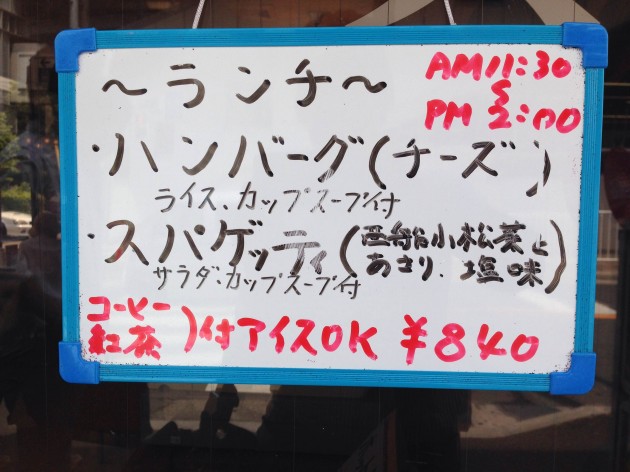 ～ランチ～
AM11:30
～
PM 2:00
・ハンバーグ(チーズ)
ライス、カップスープ付
・スパゲッティ(西船小松菜と
あさり、塩味)
サラダ、カップスープ付
コーヒー
紅茶)付アイスOK ¥840